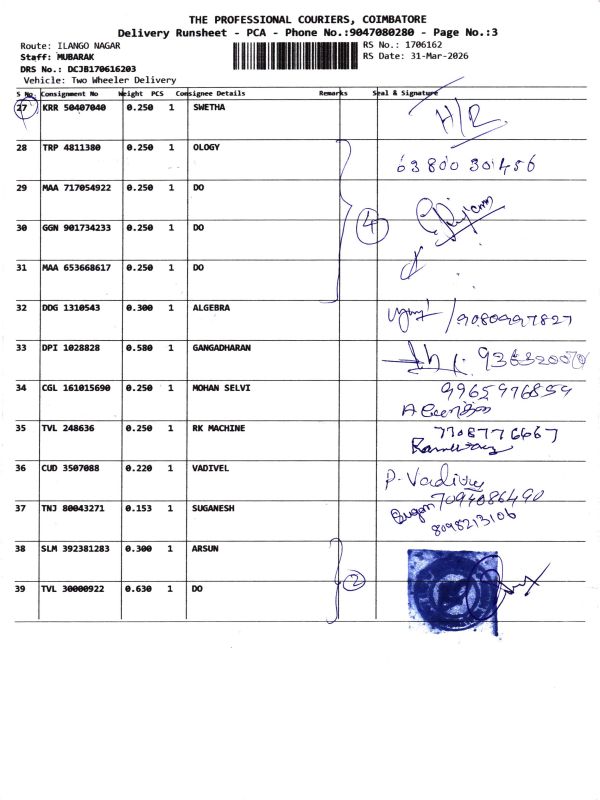 THE PROFESSIONAL COURIERS, COIMBATORE
Delivery Runsheet - PCA - Phone No.:9047080280 - Page No.:3
Route: ILANGO NAGAR RS No.: 1706162
Staff: MUBARAK RS Date: 31-Mar-2026
DRS No.: DCJB170616203
Vehicle: Two Wheeler Delivery
S No. Consignment No Weight PCS Consignee Details Remarks Seal & Signature
27 KRR 50407040 0.250 1 SWETHA H/R
28 TRP 4811380 0.250 1 OLOGY 63800 30456
29 MAA 717054922 0.250 1 DO
30 GGN 901734233 0.250 1 DO 4
31 MAA 653668617 0.250 1 DO
32 DDG 1310543 0.300 1 ALGEBRA /9080997827
33 DPI 1028828 0.580 1 GANGADHARAN
34 CGL 161015690 0.250 1 MOHAN SELVI 9965976859
35 TVL 248636 0.250 1 RK MACHINE 7708776667
36 CUD 3507088 0.220 1 VADIVEL P. Vadivel
7094086490
37 TNJ 80043271 0.153 1 SUGANESH
8098213106
38 SLM 392381283 0.300 1 ARSUN
39 TVL 30000922 0.630 1 DO 2